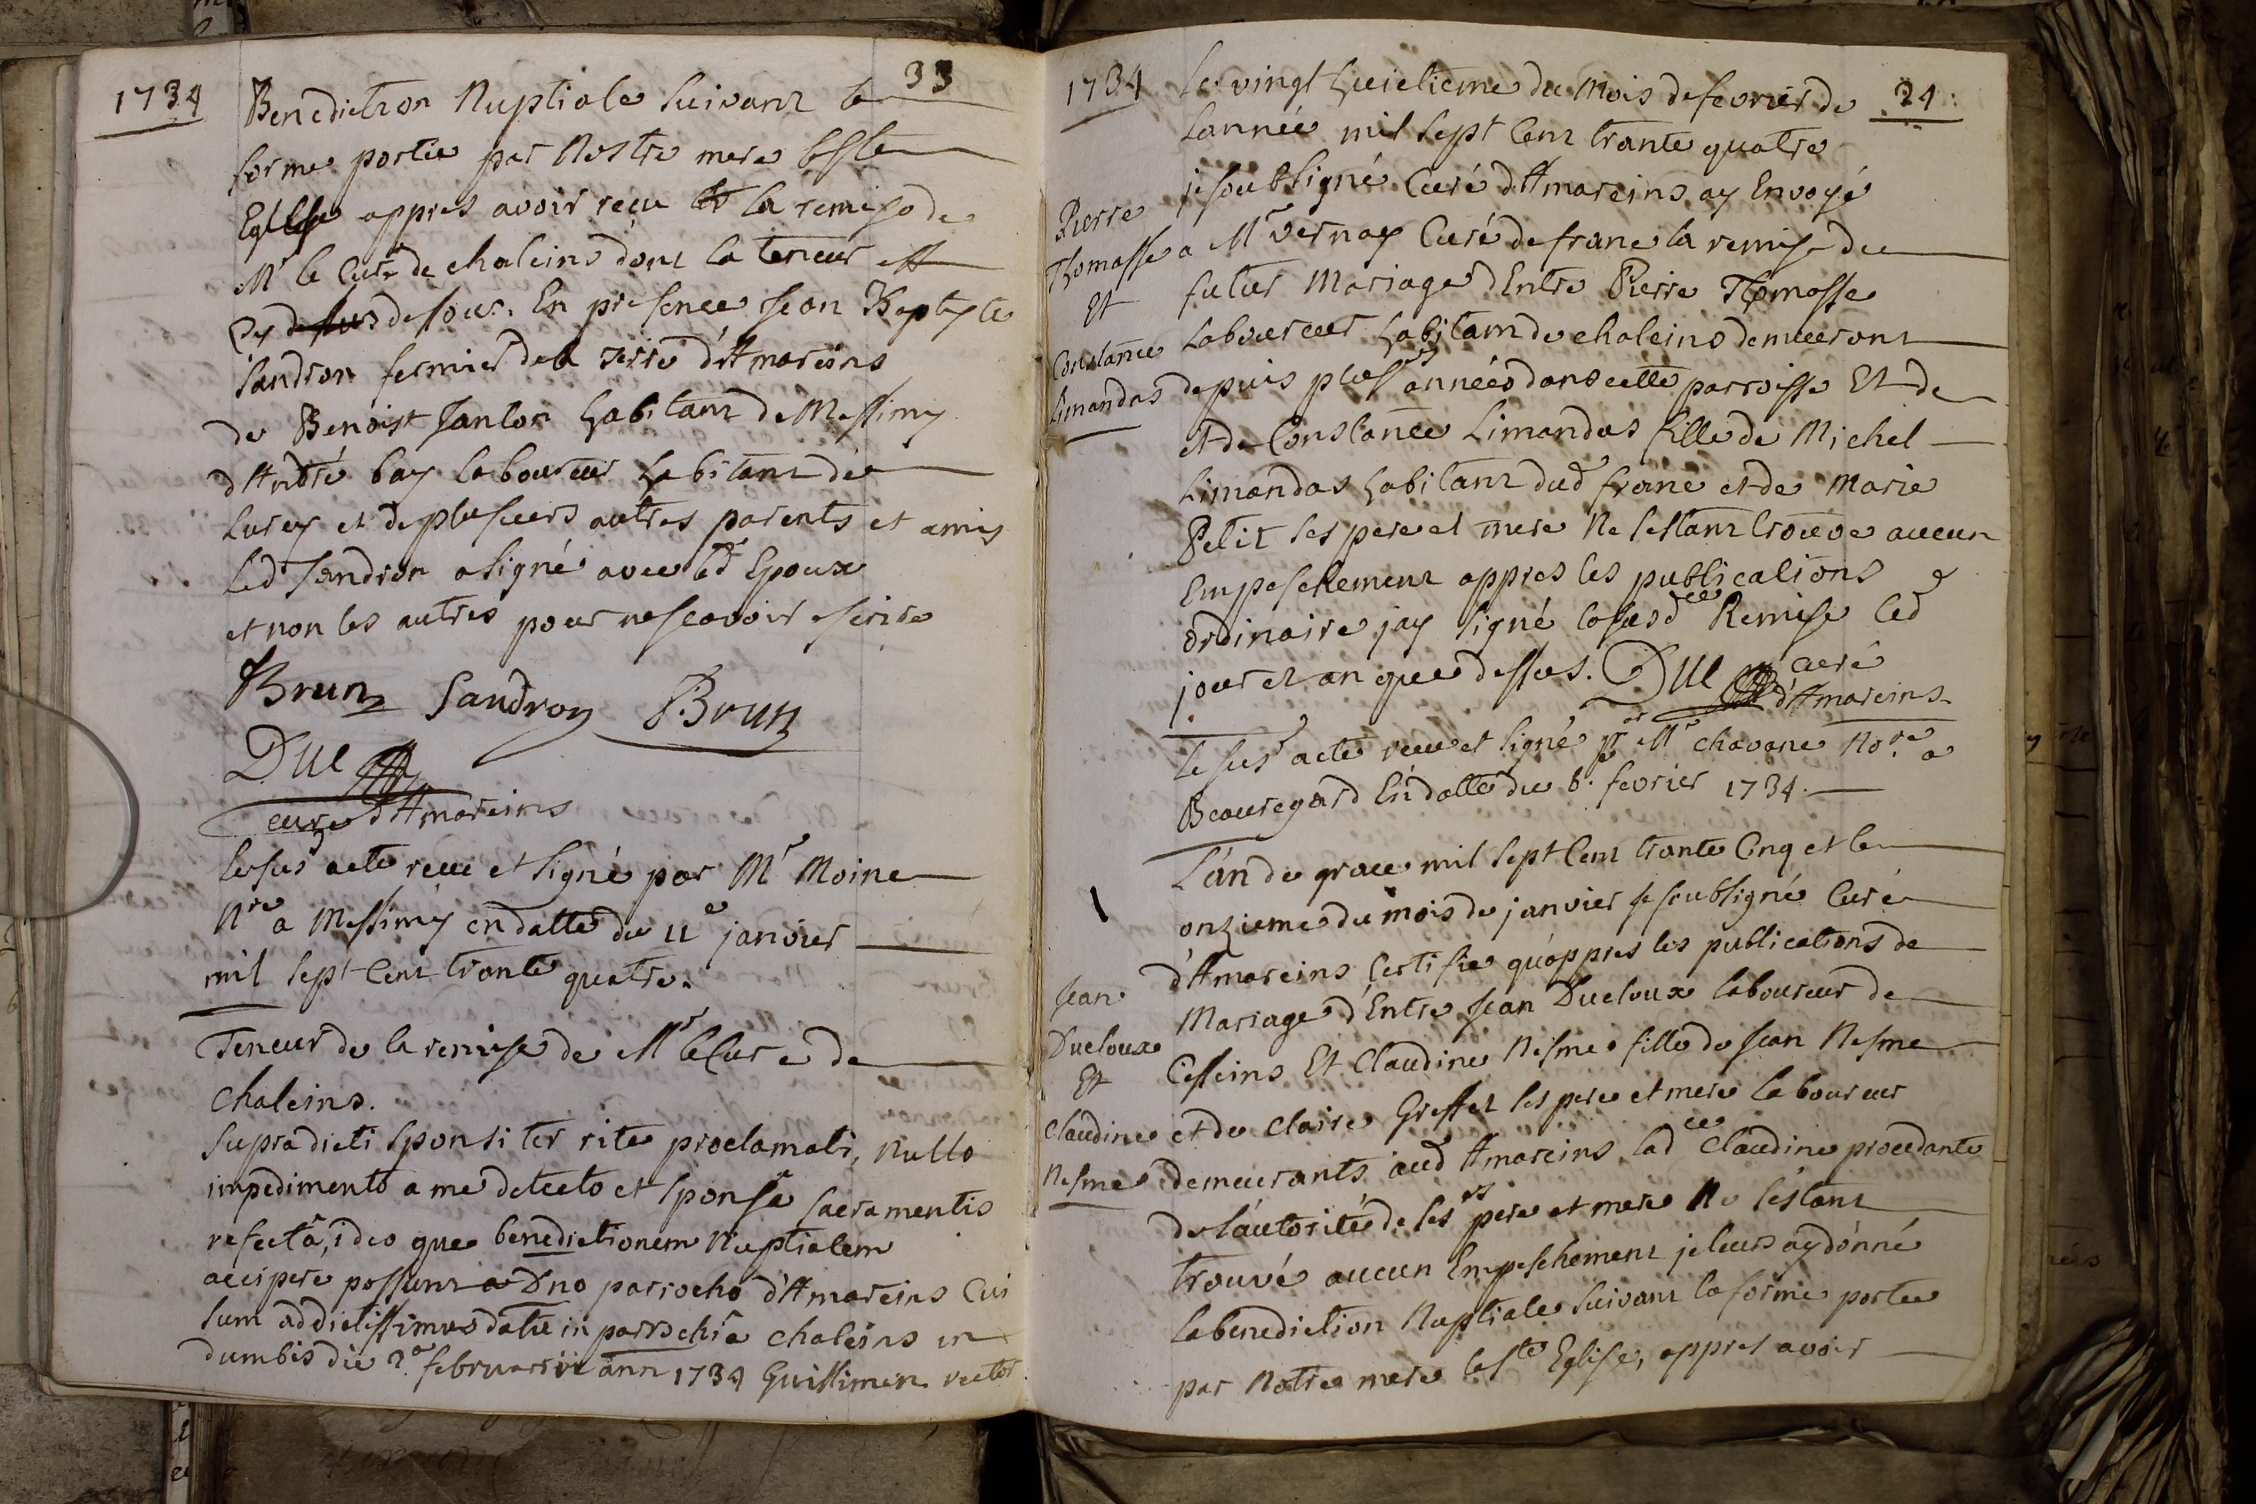 1734
33
Benediction Nuptiale suivant la
forme portée par Nostre mere la Ste
Eglise appres avoir reçu la remise de
Mr le Curé de chaleins dont la teneur est
cy dessus dessous. En presence Jean Baptyste
Sandron fermier de la Terre d'Amareins
de Benoist Janlon habitant de Messimy
d'André bay laboureur habitant de
Lurcy et de plusieurs autres parents et amis
led Sandron a signé avec led Epoux
et non les autres pour ne scavoir escrire
Brun Sandron P. Brun
Duc
curé d'Amareins
le susd acte reçu et signé par Mr Moine
Nre a Messimy en datte du 11e janvier
mil sept cent trante quatre.
Teneur de la remise de Mr le Curé de
chaleins.
Supradicti sponsi ter rite proclamati, Nullo
impedimento a me detecto et sponsa sacramentis
refecta, ideo que benedictionem Nuptialem
accipere possunt a Dno parrocho d'Amareins Cui
sum addictissimus datu in parrochia chaleins in
dumbis die 2a februarii ann 1734 Guillimin rector
1734
34
Pierre
Thomasse
Et
Constance
Limandas
Le vingt huictieme du Mois de fevrier de
Lannée mil sept cent trante quatre
je soubsigné Curé d'Amareins ay Envoyé
a Mr vernay Curé de franc la remise du
futur Mariage d'Entre Pierre Thomasse
Laboureur habitant de chaleins demeurant
depuis plusrs années dans cette parroisse Et de
et de Constance Limandas fille de Michel
Limandas habitant dud franc et de Marie
Petit ses pere et mere Ne sestant trouvé aucun
Empeschement appres les publications
ordinaire jay signé la susdee Remise led
jour et an que dessus. Duc curé
d'Amareins
le susd acte reçu et signé pr Mr chavane Nore a
Beauregard En datte du 8. fevrier 1734.
Jean
Ducloux
Et
claudine
Nesme
L'an de grace mil sept cent trante cinq et le
onzieme du mois de janvier je soubsigné Curé
d'Amareins Certifie qu'appres les publications de
Mariage d'Entre Jean Ducloux laboureur de
Cesseins Et Claudine Nesme fille de Jean Nesme
et de Claire Greffet ses pere et mere laboureur
demeurants aud Amareins ladee Claudine procedante
de l'autorité de sesds pere et mere Ne s'éstant
trouvé aucun Empeschement je leurs ay donné
la benediction Nuptiale suivant la forme portée
par Notre mere la Ste Eglise, appres avoir